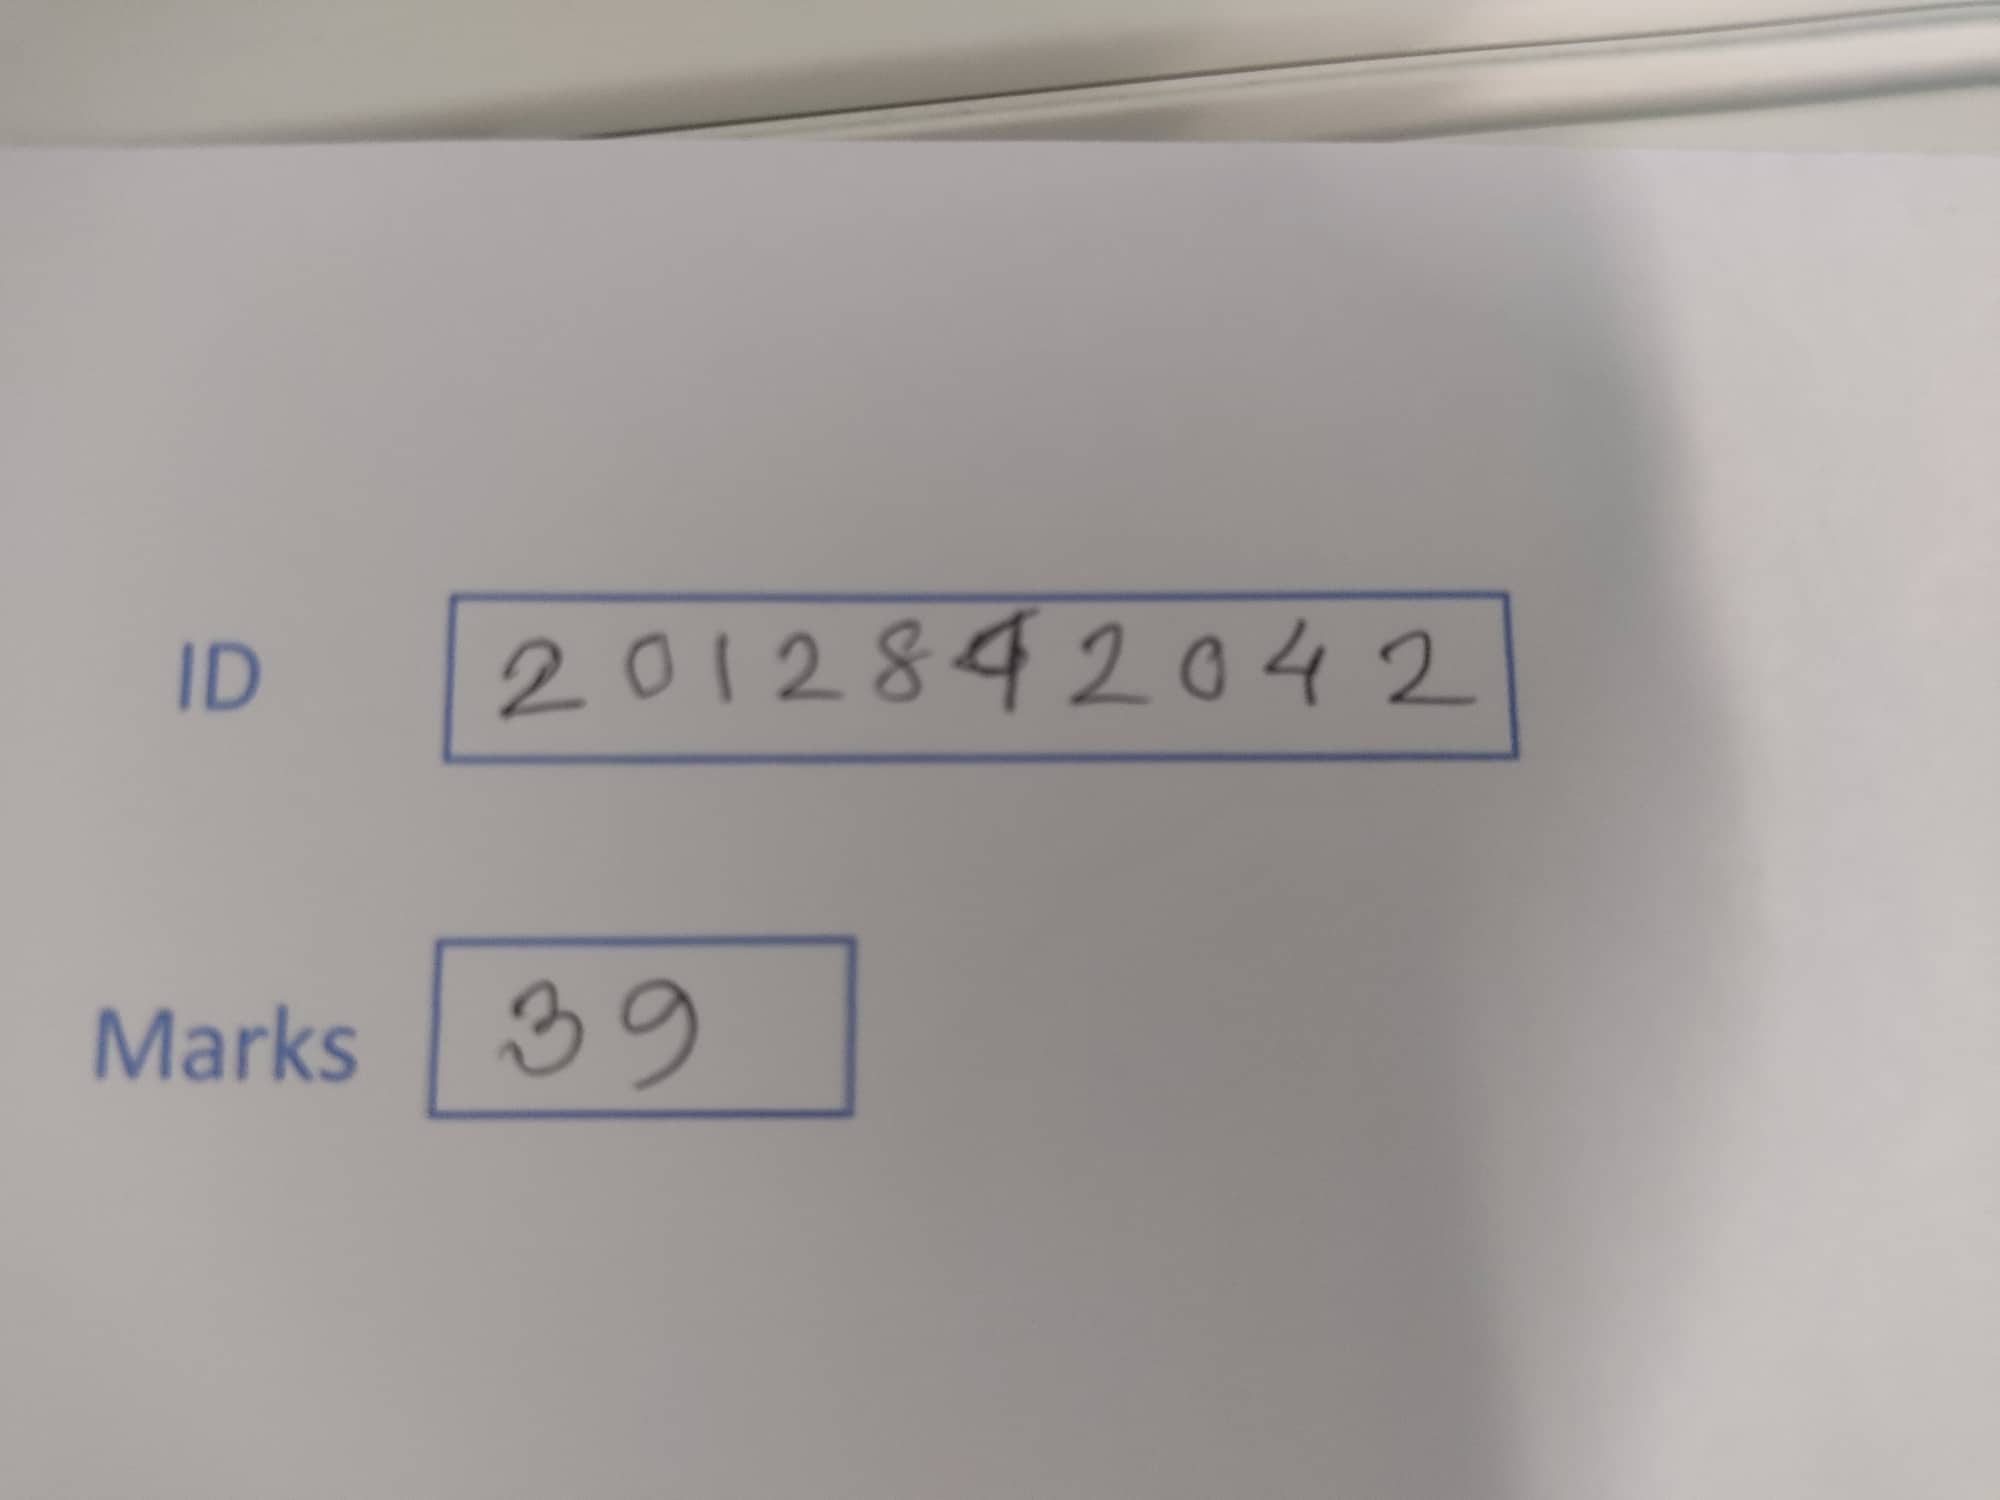 ID 2012842042
Marks 39